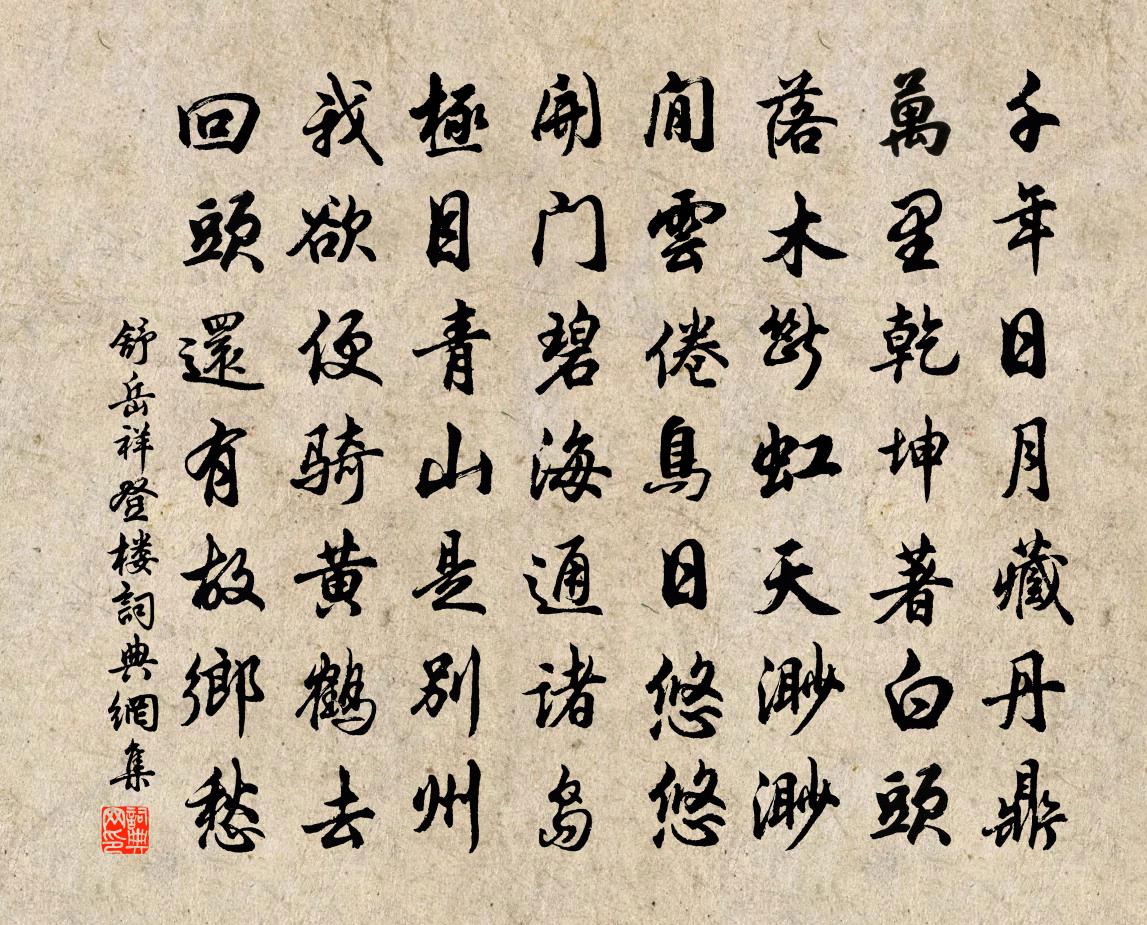 千年日月藏丹鼎
萬里乾坤著白頭
落木断虹天渺渺
閒雲倦鳥日悠悠
開门碧海通诸岛
極目青山是别州
我欲便骑黄鹤去
回頭還有故鄉愁
舒岳祥登楼詞典網集
詞典網印